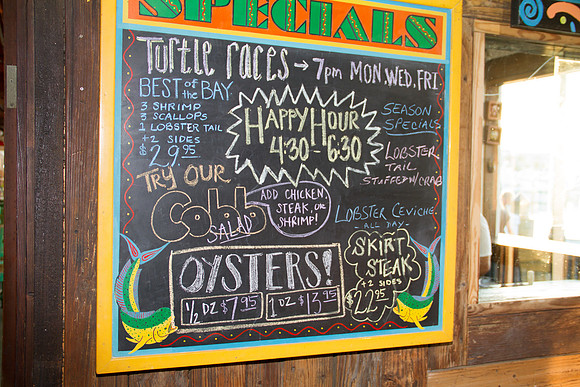 SPECIALS
Turtle races → 7pm MON, WED, FRI
BEST of the BAY
3 SHRIMP
3 SCALLOPS
1 LOBSTER TAIL
+2 SIDES
$29.95
HAPPY HOUR
4:30-6:30
SEASON
SPECIALS
LOBSTER
TAIL
STUFFED W/CRAB
TRY OUR
Cobb
SALAD
ADD CHICKEN,
STEAK, OR
SHRIMP!
LOBSTER CEVICHE
- ALL DAY -
SKIRT
STEAK
+2 SIDES
$22.95
OYSTERS!
1/2 DZ $7.95
1 DZ $13.95